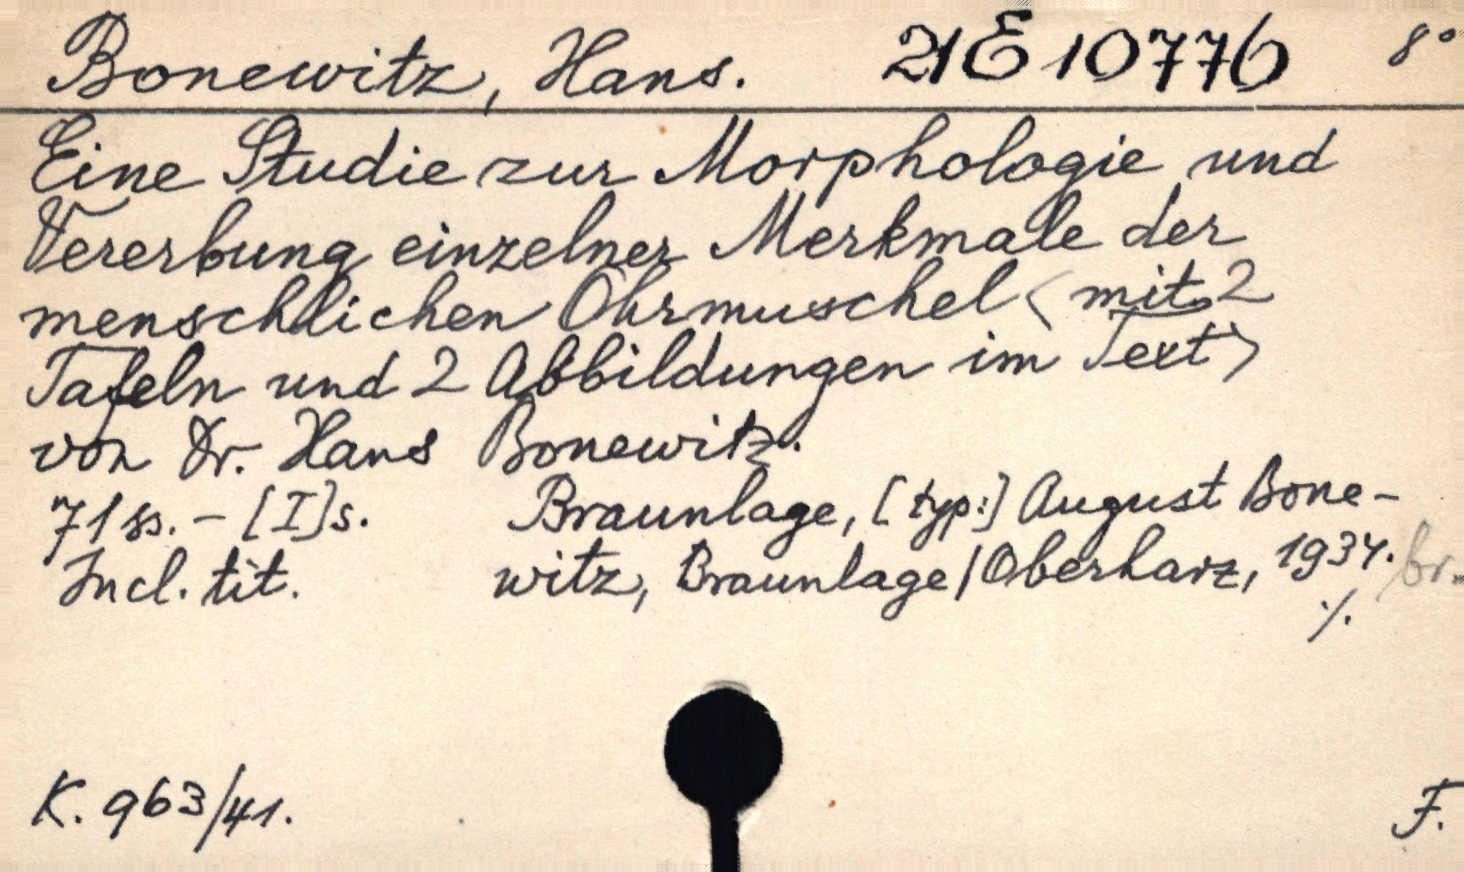 Bonewitz, Hans. 21 E 10776 8°
Eine Studie zur Morphologie und
Vererbung einzelner Merkmale der
menschlichen Ohrmuschel <mit 2
Tafeln und 2 Abbildungen im Text>
von Dr. Hans Bonewitz.
71 ss. - [I] s. Braunlage, [typ:] August Bone-
Incl. tit. witz, Braunlage/Oberharz, br.
./.
K. 963/41. F.